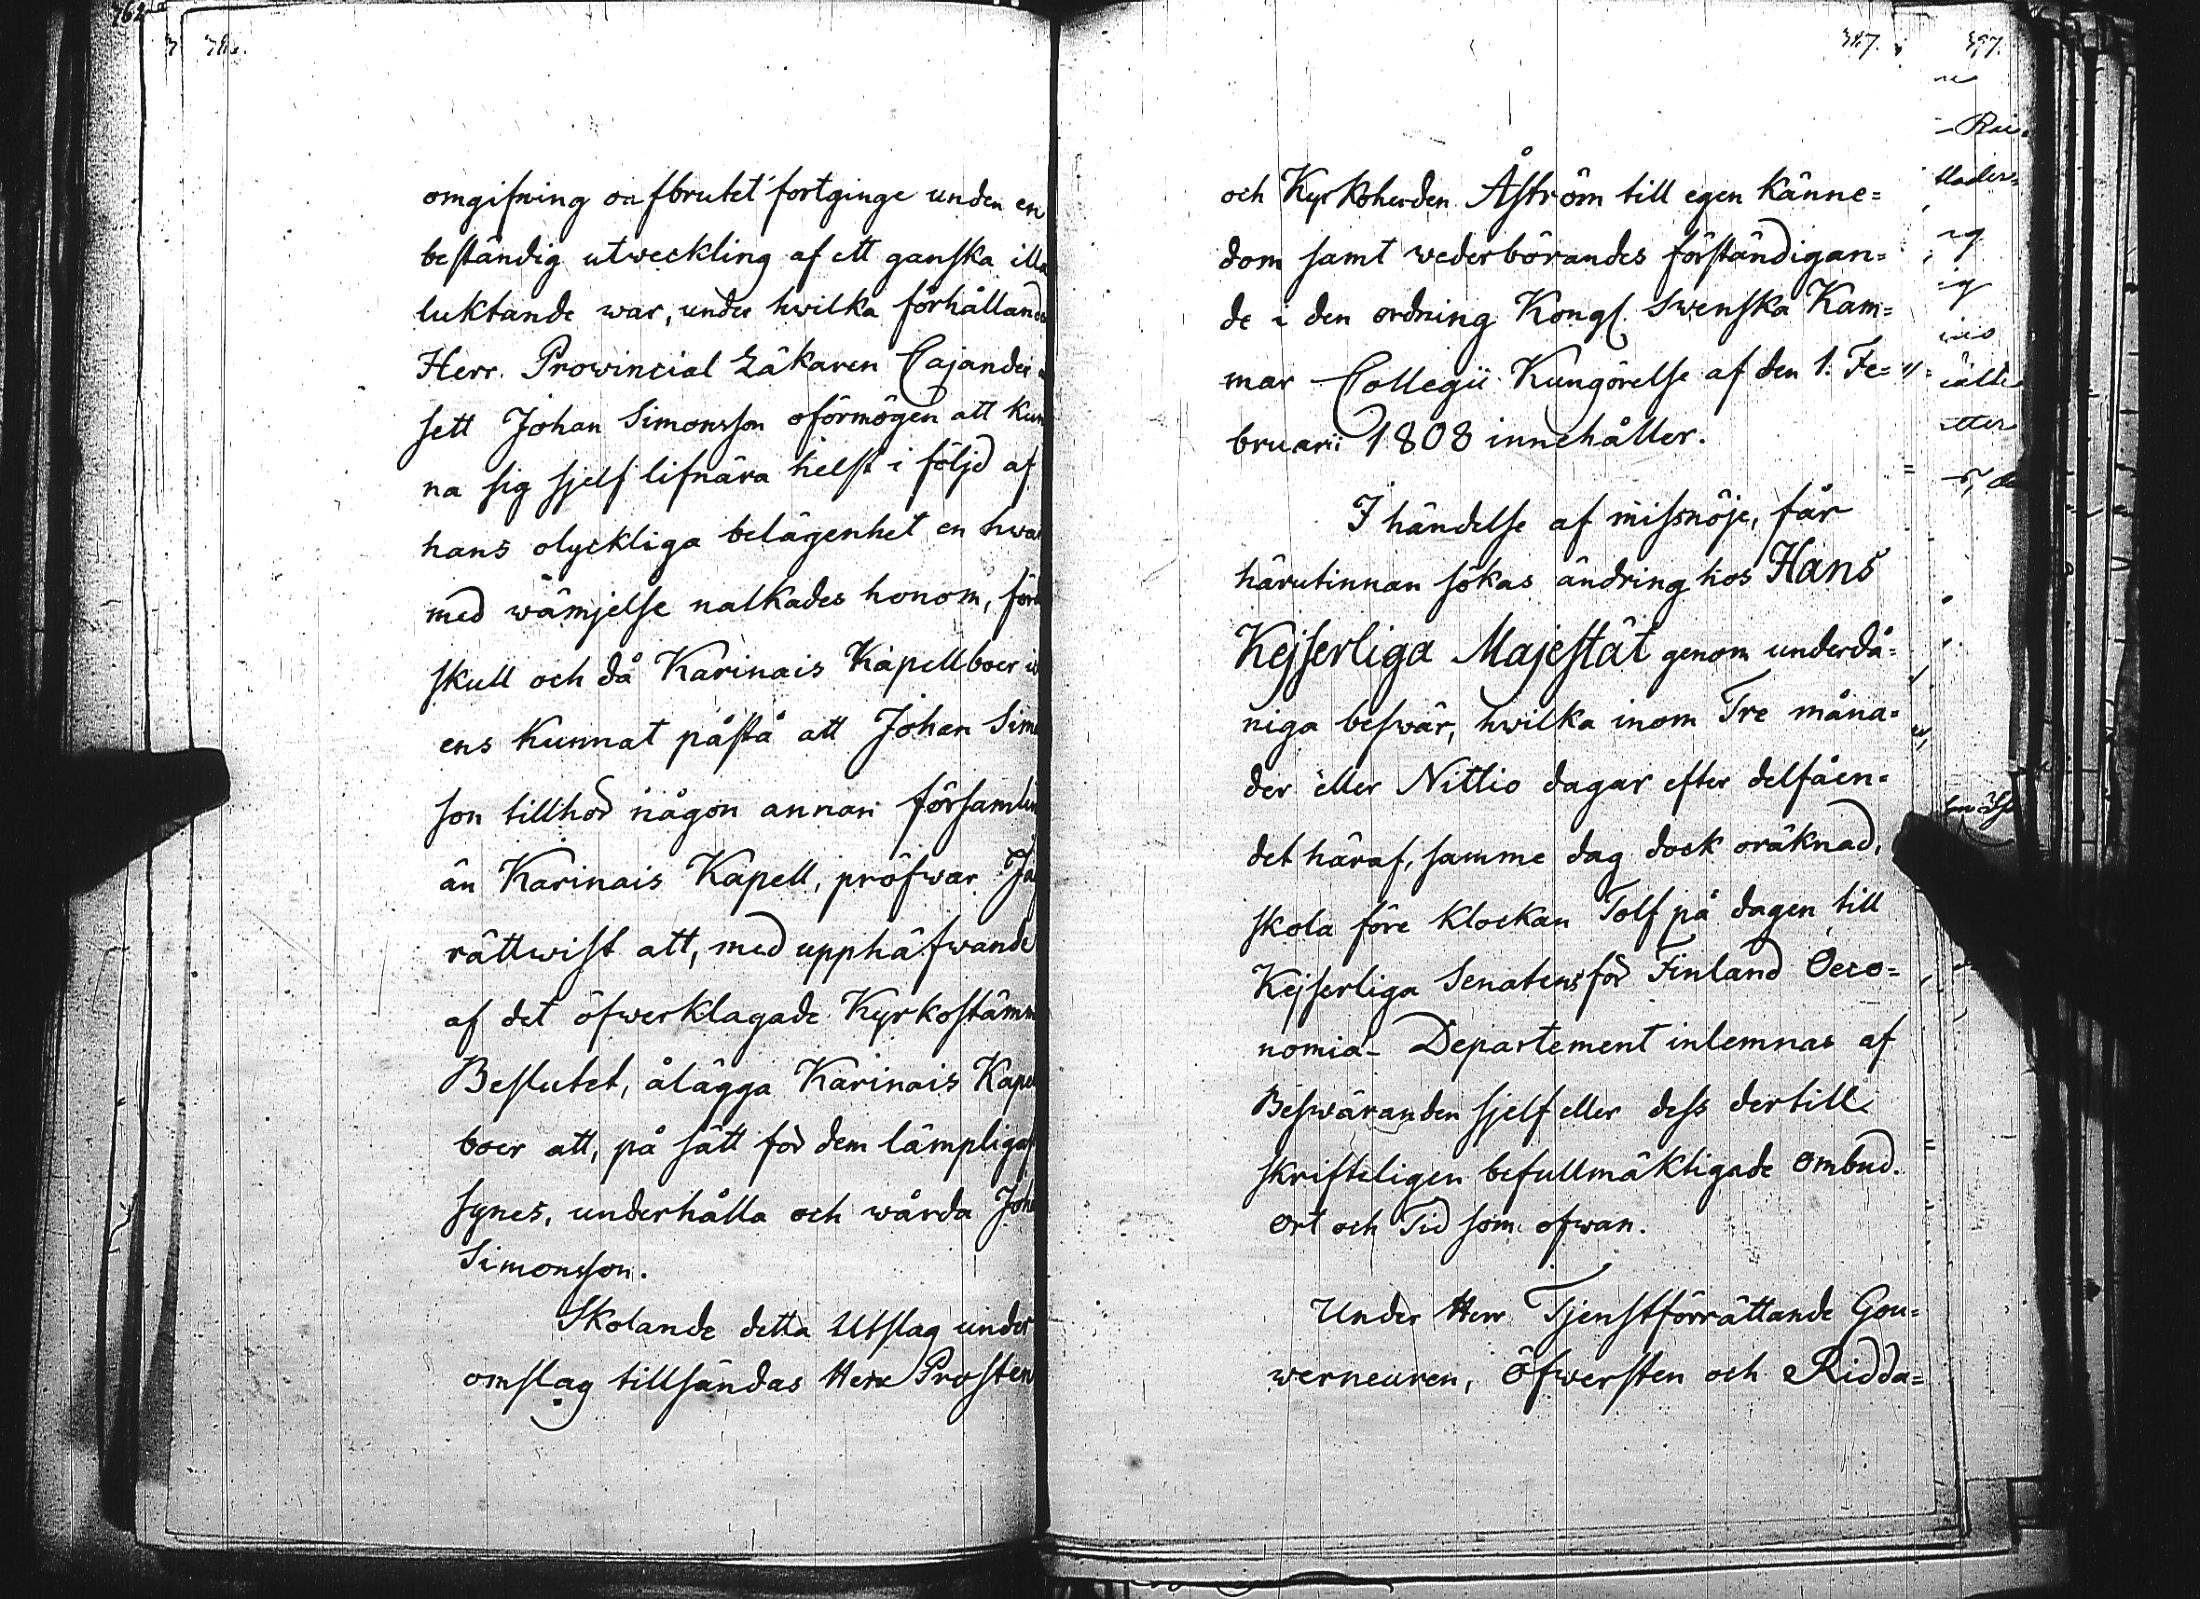 omgifning oafbrutet fortginge under en
beständig utweckling af ett ganska illa
luktande war, under hwilka förhålland
Herr Provincial Läkaren Cajander
sett Johan Simonsson oförmögen att kun
na sig sjelf lifnära helst i följd af
hans olyckliga belägenhet en hwar
med wämjelse nalkades honom,
skull och då Karinais Kapellboer
ens kunnat påstå att Johan Simo
son tillhör någon annan församlin
än Karinais Kapell, pröfwar Jag
rättwist att, med upphäfwande
af det öfwerklagade Kyrkostämm
Beslutet, ålägga Karinais Kapel
boer att, på sätt för dem lämpligas
synes, underhålla och wårda Joha
Simonsson.
Skolande detta Utslag under
omslag tillsändas Herr Prosten
387.
397.
och Kyrkoherden Åström till egen känne=
dom samt wederbörandes förständigan=
de i den ordning Kongl. Swenska Kam=
mar Collegii Kungörelse af den 1. Fe=
bruarii 1808 innehåller.
I händelse af missnöje, får
härutinnan sökas ändring hos Hans
Kejserliga Majestät genom underdå=
niga beswär, hwilka inom Tre måna=
der eller Nittio dagar efter delfåen=
det häraf, samme dag dock oräknad,
skola före klockan Tolf på dagen till
Kejserliga Senatens för Finland Oeco=
nomia- Departement inlemnas af
Beswäranden sjelf eller dess dertill
skrifteligen befullmäktigade ombud.
Ort och Tid som ofwan.
Under Herr Tjenstförrättande Gou=
werneuren, Öfwersten och Ridda=